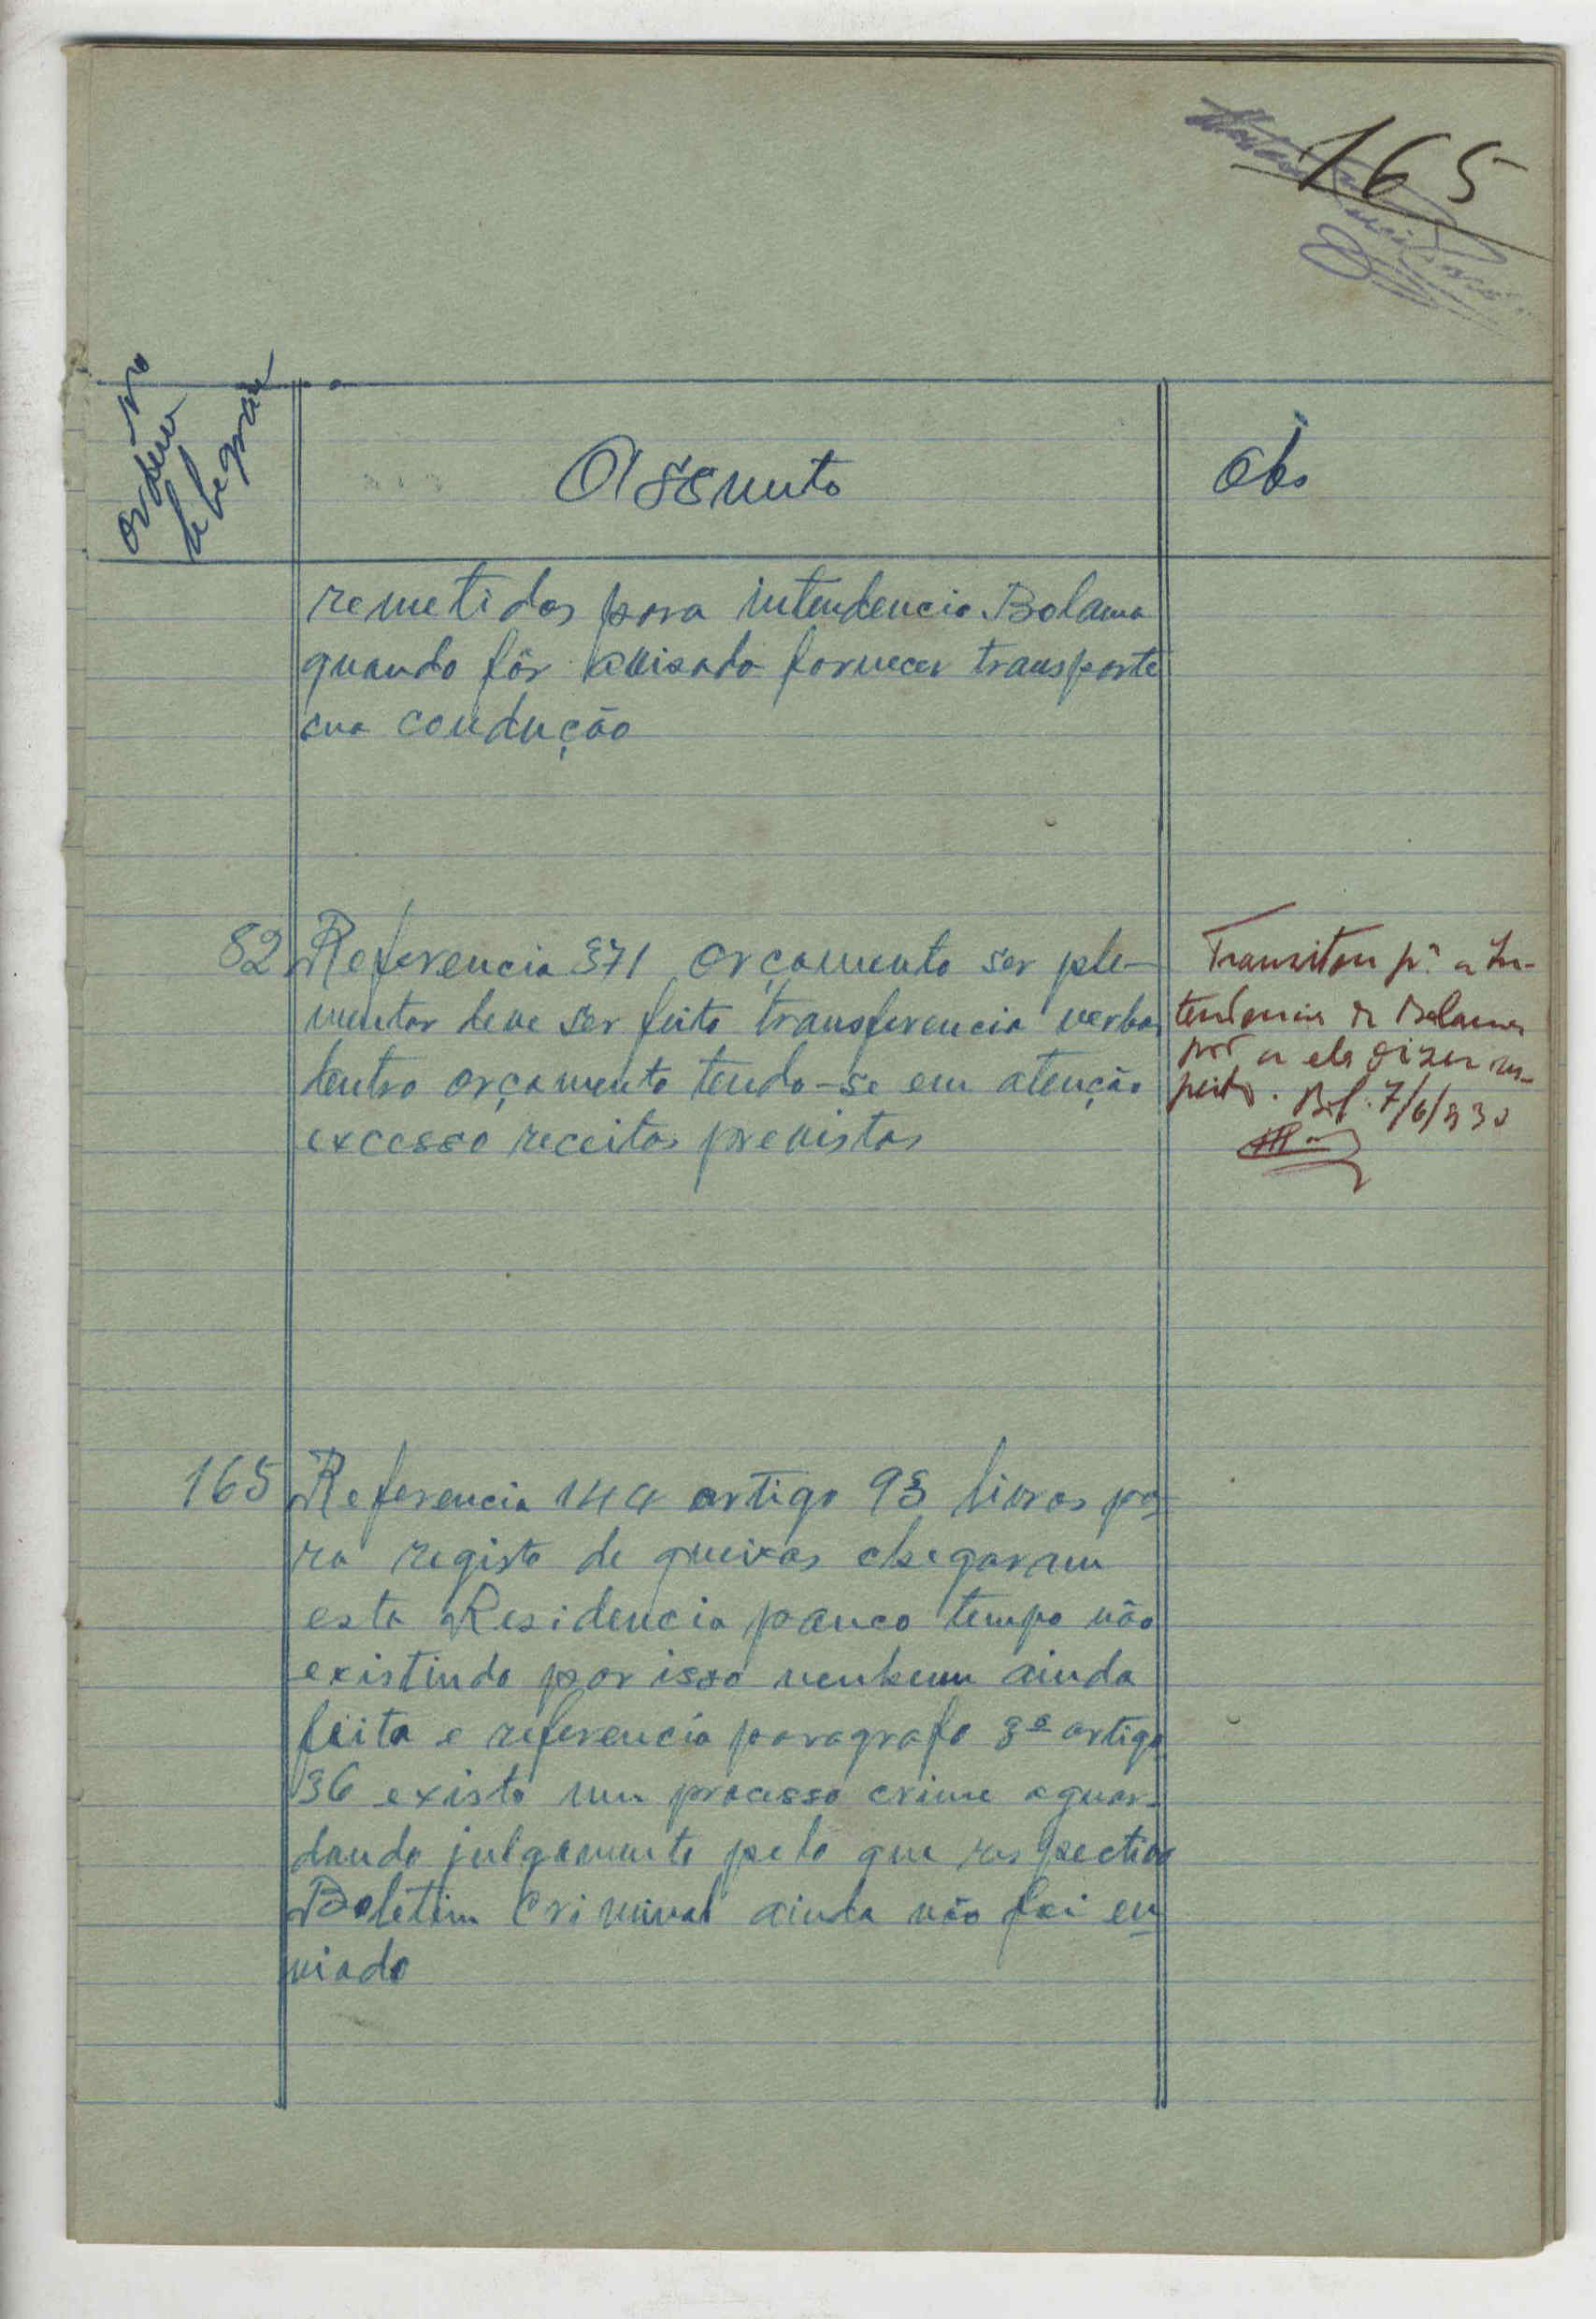 165
Nro
ordem
telegrama
Assunto
Obs
remetidos para intendencia Bolama
quando fôr avisado fornecer transporte
sua condução
82 Referencia 371 orçamento ser ple-
mentar deve ser feito transferencia verbas
dentro orçamento tendo-se em atenção
excesso receitas previstas
Transitou pª a In-
tendencia de Bolama
por a ela dizer res-
peito. Bol. 7/6/930
165 Referencia 144 artigo 93 livros pa-
ra registo de queixas chegaram
esta Residencia pouco tempo não
existindo por isso nenhum ainda
feita e referencia paragrafo 3º artigo
36 existe um processo crime aguar-
dando julgamento pelo que respectivo
Boletim Criminal ainda não foi en
viado